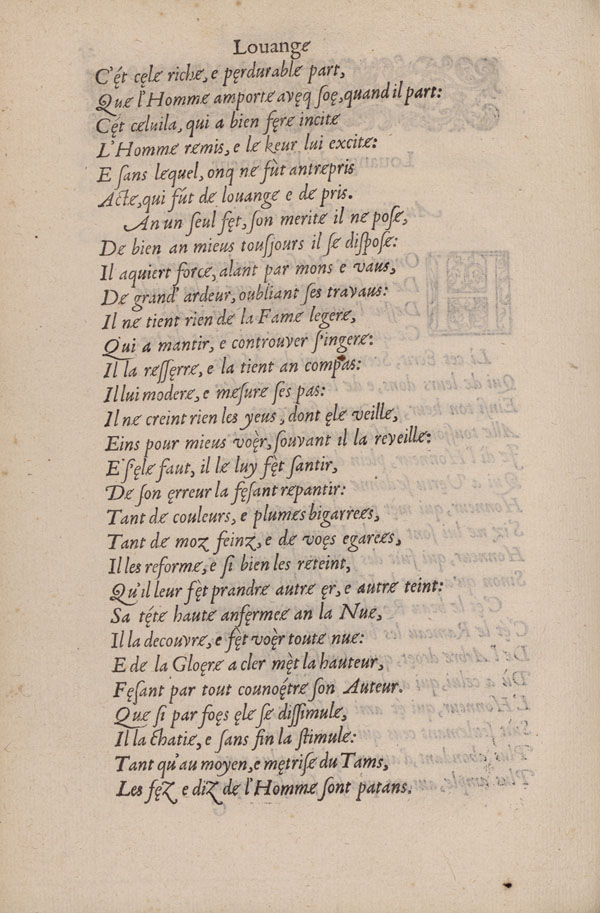 Louange
C'ęt cęle riche, e pęrdurable part,
Que l'Homme amporte avęq soę, quand il part:
Cęt celuila, qui a bien fęre incite
L'Homme remis, e le keur lui excite:
E sans lequel, onq ne fùt antrepris
Acte, qui fút de louange e de pris.
An un seul fęt, son merite il ne pose,
De bien an mieus tousjours il se dispose:
Il aquiert force, alant par mons e vaus,
De grand' ardeur, oubliant ses travaus:
Il ne tient rien de la Fame legere,
Qui a mantir, e controuver s'ingere:
Il la ressęrre, e la tient an compas:
Il lui modere, e mesure ses pas:
Il ne creint rien les yeus, dont ęle veille,
Eins pour mieus voęr, souvant il la reveille:
E s'ęle faut, il le luy fęt santir,
De son ęrreur la fęsant repantir:
Tant de couleurs, e plumes bigarrees,
Tant de moz feinz, e de voęs egarees,
Il les reforme, e si bien les reteint,
Qu'il leur fęt prandre autre ęr, e autre teint:
Sa téte haute anfermee an la Nue,
Il la decouvre, e fęt voęr toute nue:
E de la Gloęre a cler mèt la hauteur,
Fęsant par tout counoętre son Auteur.
Que si par foęs ęle se dissimule,
Il la chatie, e sans fin la stimule:
Tant qu'au moyen, e mętrise du Tams,
Les fęz e diz de l'Homme sont patans.